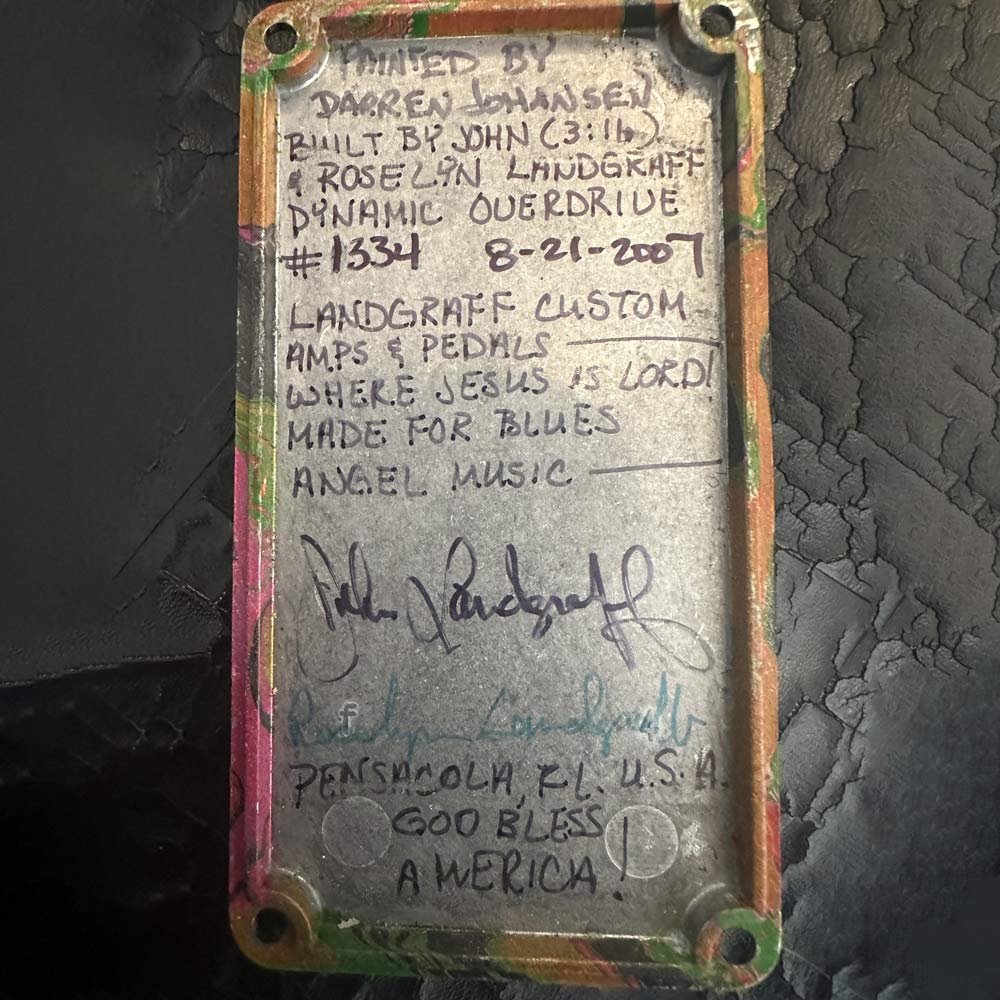 PAINTED BY
DARREN JOHANSEN
BUILT BY JOHN (3:16)
& ROSELYN LANDGRAFF
DYNAMIC OVERDRIVE
#1334 8-21-2007
LANDGRAFF CUSTOM
AMPS & PEDALS —
WHERE JESUS IS LORD!
MADE FOR BLUES
ANGEL MUSIC —
John Landgraff
Roselyn Landgraff
PENSACOLA, FL. U.S.A.
GOD BLESS
AMERICA!